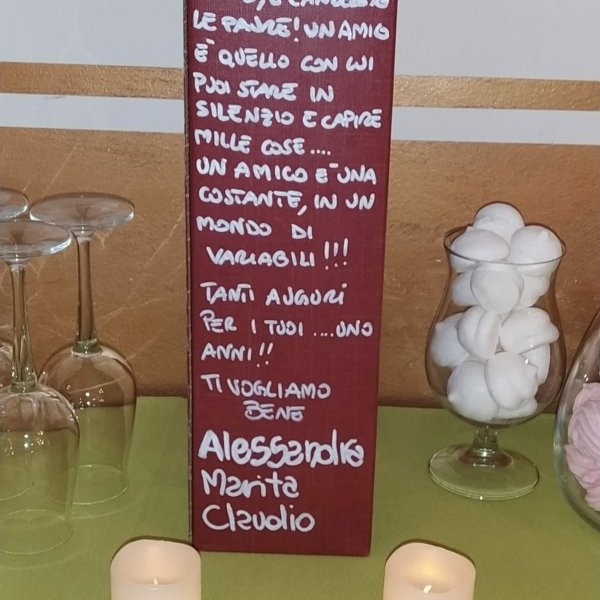 LE PAURE! UN AMICO
È QUELLO CON CUI
PUOI STARE IN
SILENZIO E CAPIRE
MILLE COSE....
UN AMICO È UNA
COSTANTE, IN UN
MONDO DI
VARIABILI!!!
TANTI AUGURI
PER I TUOI ....UNO
ANNI!!
TI VOGLIAMO
BENE
Alessandra
Marita
Claudio